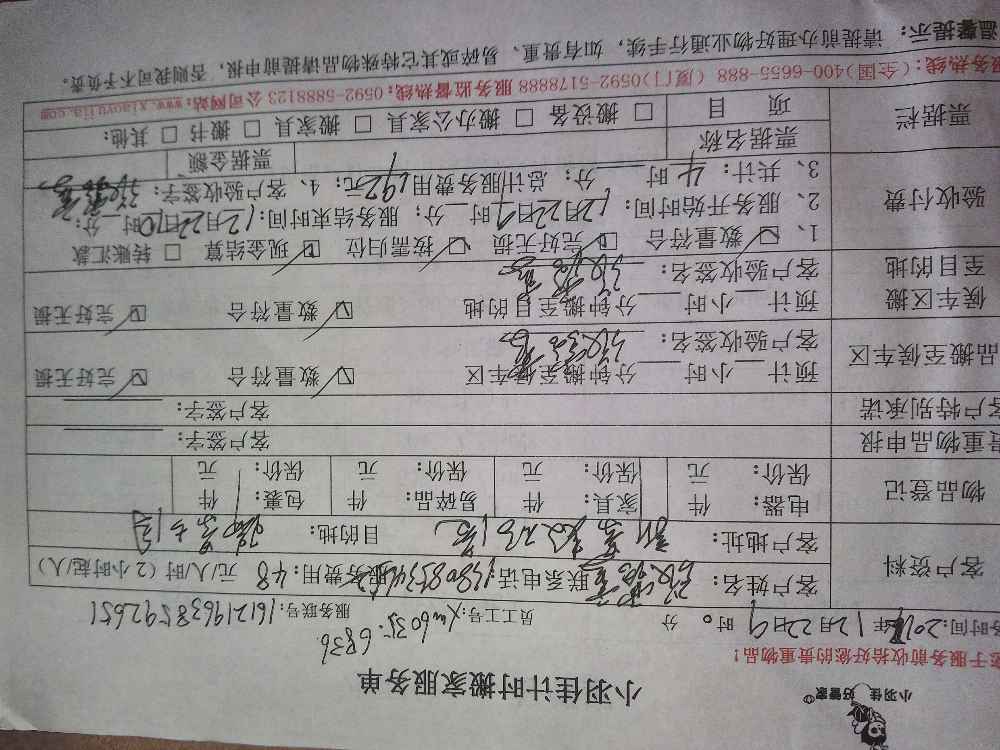 小羽佳 好管家
小羽佳计时搬家服务单
请于服务前收拾好您的贵重物品！
服务时间：2016年12月22日9时0分 员工工号：Xm6035. 6836 服务联号：161219638592651
客户资料
客户姓名： 联系电话： 服务费用：48 元/人/时（2小时起/人）
客户地址： 目的地：
物品登记
电器： 件 家具： 件 易碎品： 件 包裹： 件
保价： 元 保价： 元 保价： 元 保价： 元
贵重物品申报 客户签字：
客户特别承诺 客户签字：
物品搬至候车区
预计 小时 分钟搬至候车区 ☑ 数量符合 ☑ 完好无损
客户验收签名：
候车区搬至目的地
预计 小时 分钟搬至目的地 ☑ 数量符合 ☑ 完好无损
客户验收签名：
验收付费
1、☑ 数量符合 ☑ 完好无损 ☑ 按需归位 ☑ 现金结算 □ 转账汇款
2、服务开始时间：12月22日9时 分；服务结束时间：12月22日10时 分；
3、共计：4时 分；总计服务费用：192元；4、客户验收签字：
票据栏
票据名称 票据金额
项 目 □ 搬设备 □ 搬办公家具 □ 搬家具 □ 搬书 □ 其他：
服务热线：(全国)400-6655-888 (厦门)0592-5178888 服务监督热线：0592-5888123 公司网站：www.xiaoyujia.com
温馨提示：请提前办理好物业通行手续，如有贵重、易碎或其它特殊物品请提前申报，否则我司不予负责。